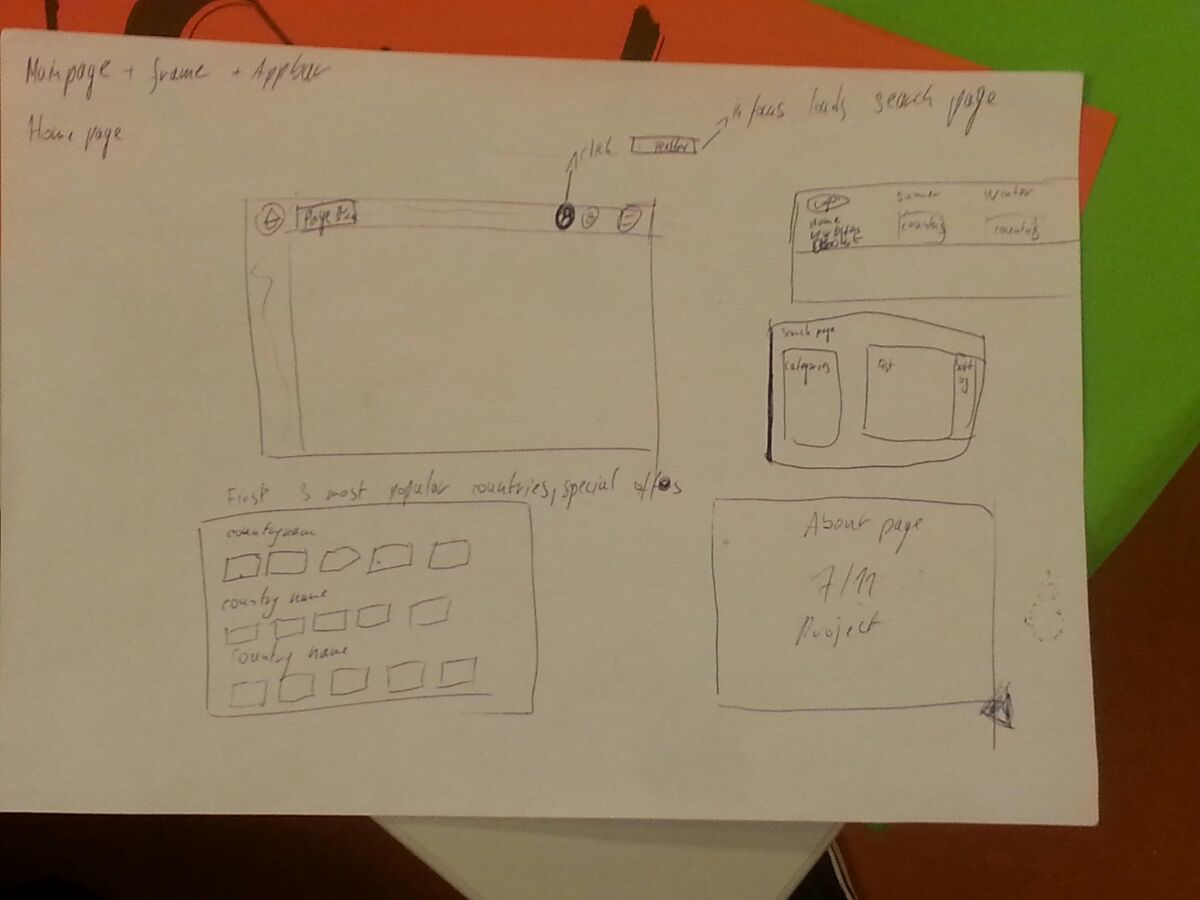 Mainpage + frame + Appbar
Home page
click
in focus loads search page
Page
Summer
Winter
home
countries
countries
Search page
categories
list
sort
by
First 3 most popular countries, special offers
country name
country name
country name
About page
7/11
Project